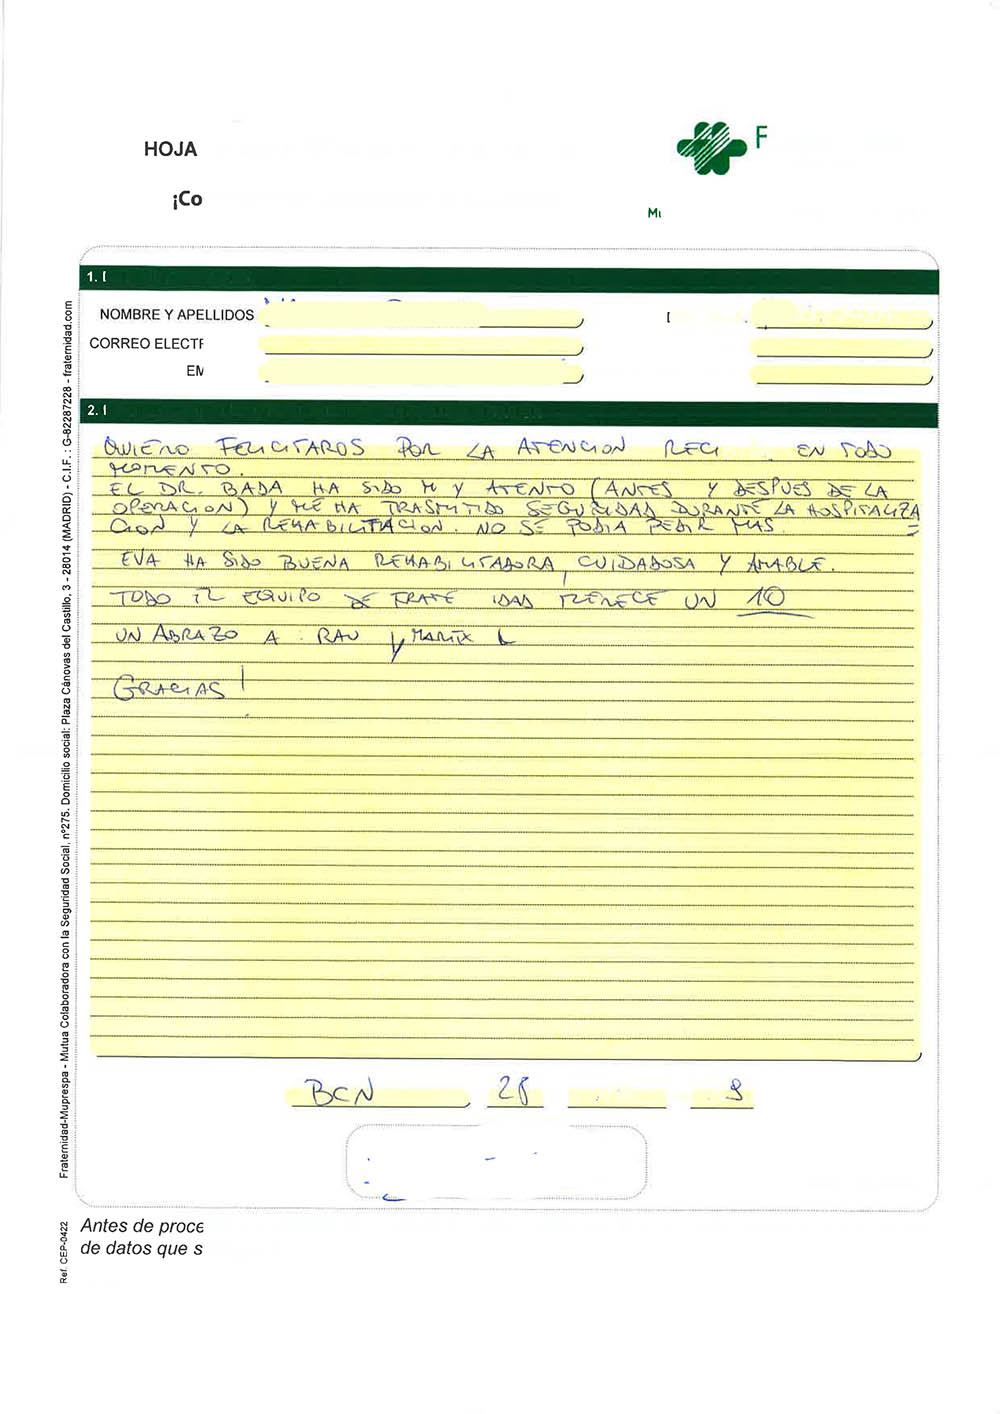 HOJA
F
¡Co
1.
NOMBRE Y APELLIDOS
CORREO ELECTR
EM
2.
QUIERO FELICITAROS POR LA ATENCION RECI EN TODO
MOMENTO.
EL DR. BADA HA SIDO M Y ATENTO (ANTES Y DESPUES DE LA
OPERACION) Y ME HA TRASMITIDO SEGURIDAD DURANTE LA HOSPITALIZA
CION Y LA REHABILITACION. NO SE PODIA PEDIR MAS.
EVA HA SIDO BUENA REHABILITADORA, CUIDADOSA Y AMABLE.
TODO EL EQUIPO DE FRATE IDAD MERECE UN 10
UN ABRAZO A : RAU Y
GRACIAS!
BCN 28 9
Antes de proce
de datos que s
Fraternidad-Muprespa - Mutua Colaboradora con la Seguridad Social, nº275. Domicilio social: Plaza Cánovas del Castillo, 3 - 28014 (MADRID) - C.I.F. : G-82287228 - fraternidad.com
Ref. CEP-0422